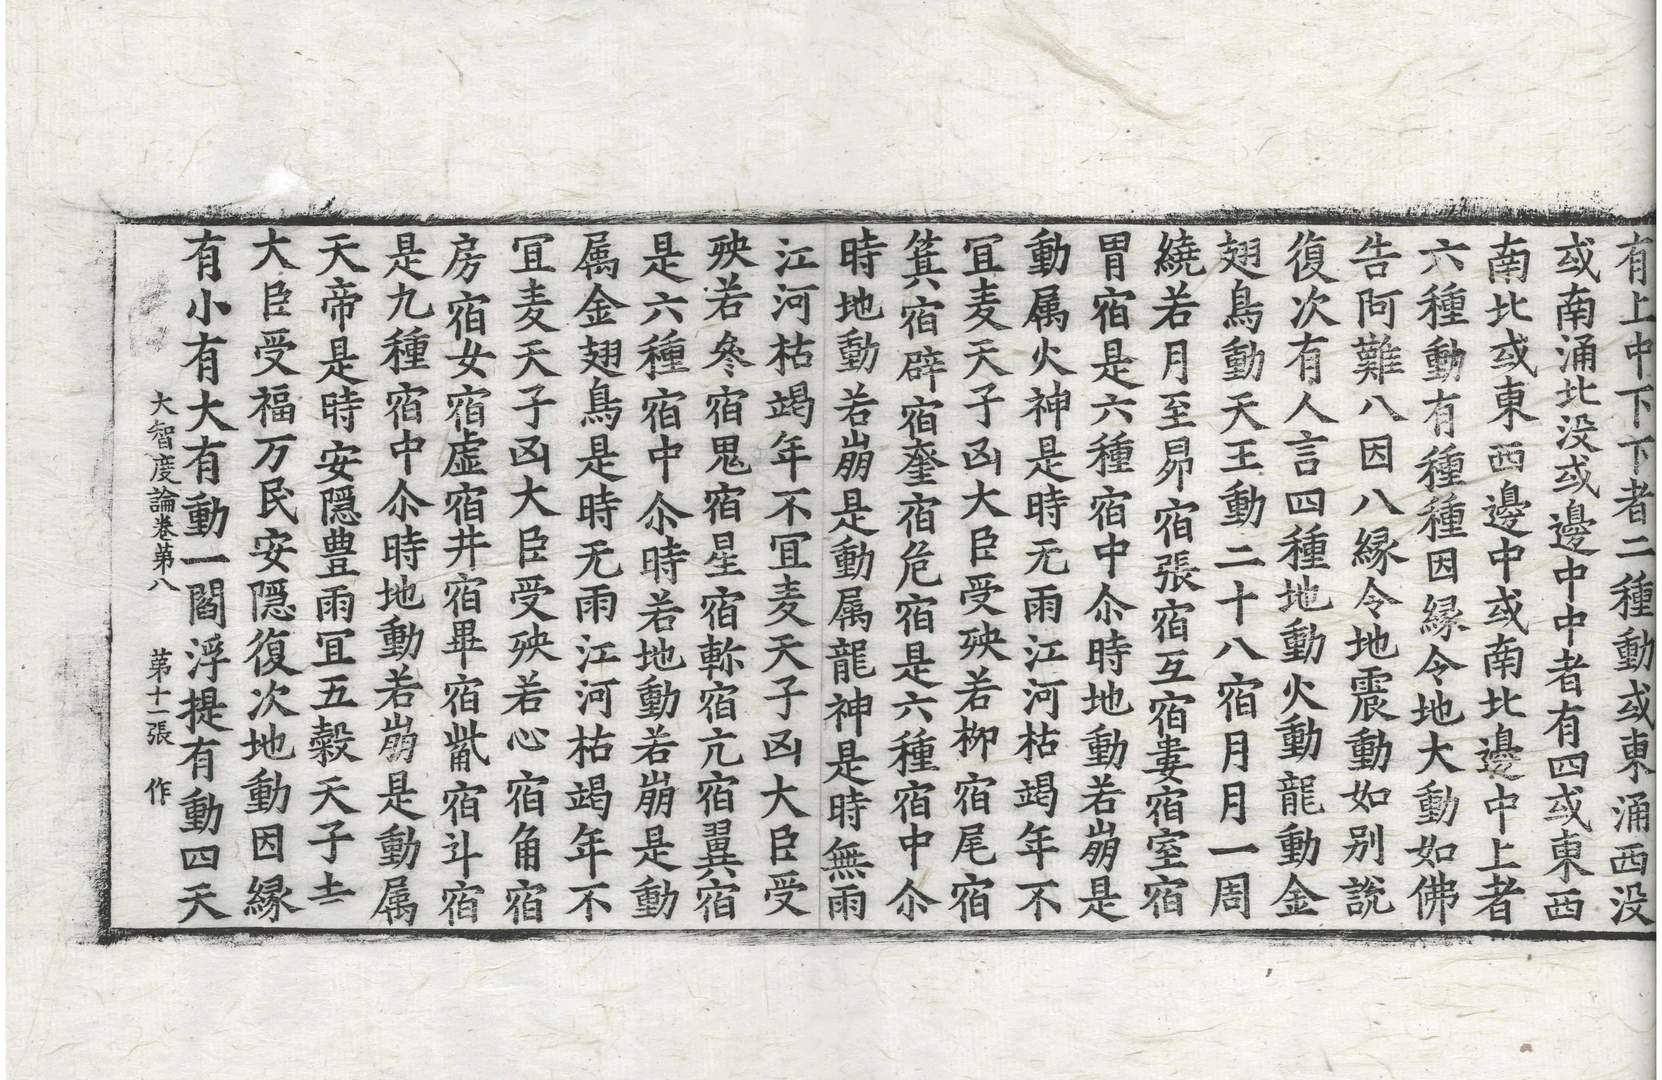 有上中下下者二種動或東涌西没
或南涌北没或邊中中者有四或東西
南北或東西邊中或南北邊中上者
六種動有種種因縁令地大動如佛
告阿難八因八縁令地震動如别說
復次有人言四種地動火動龍動金
翅鳥動天王動二十八宿月月一周
繞若月至昴宿張宿互宿婁宿室宿
胃宿是六種宿中尒時地動若崩是
動属火神是時无雨江河枯竭年不
冝麦天子凶大臣受殃若柳宿尾宿
箕宿辟宿奎宿危宿是六種宿中尒
時地動若崩是動属龍神是時無雨
江河枯竭年不冝麦天子凶大臣受
殃若叅宿鬼宿星宿軫宿亢宿翼宿
是六種宿中尒時若地動若崩是動
属金翅鳥是時无雨江河枯竭年不
冝麦天子凶大臣受殃若心宿角宿
房宿女宿虚宿井宿畢宿觜宿斗宿
是九種宿中尒時地動若崩是動属
天帝是時安隱豊雨冝五穀天子吉
大臣受福万民安隱復次地動因縁
有小有大有動一閻浮提有動四天
大智度論卷第八 第十一張 作